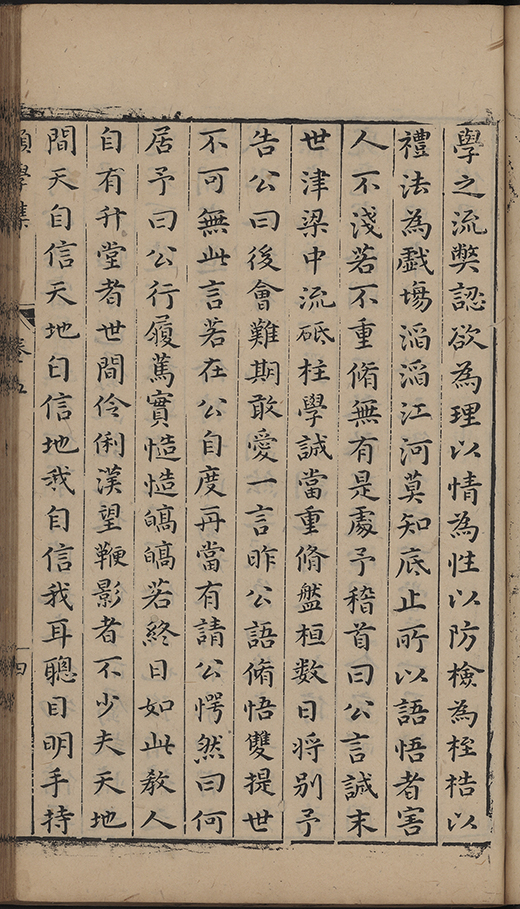 學之流獘認欲為理以情為性以防檢為桎梏以
禮法為戲塲滔滔江河莫知底止所以語悟者害
人不淺若不重脩無有是處予稽首曰公言誠末
世津梁中流砥柱學誠當重脩盤桓数日将别予
告公曰後會難期敢愛一言昨公語脩悟雙提世
不可無此言若在公自度再當有請公愕然曰何
居予曰公行履篤實慥慥皜皜若終日如此教人
自有升堂者世間伶俐漢望鞭影者不少夫天地
間天自信天地自信地我自信我耳聰目明手持
學集
卷五
四